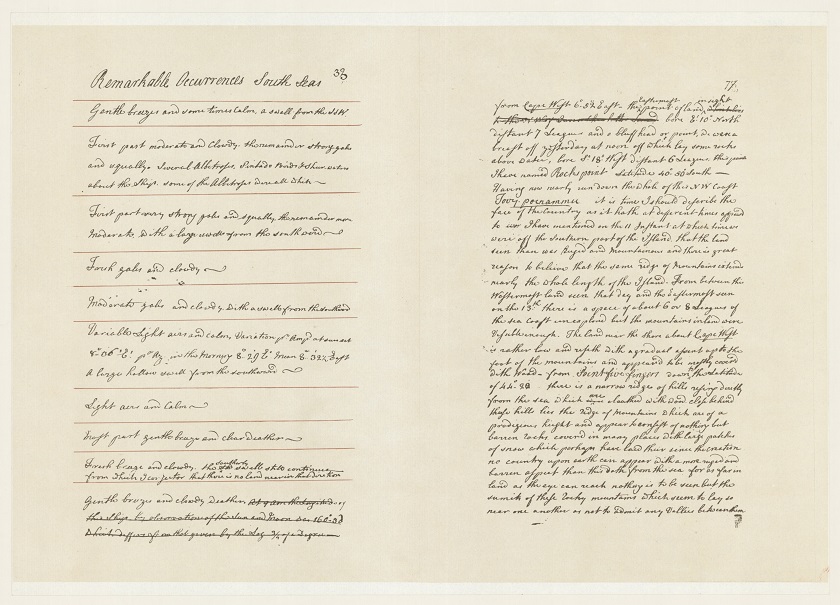 Remarkable Occurrences South Seas
33
Gentle breezes and some times Calm, a swell from the SSW
First part moderate and Cloudy, the remainder strong gales
and squally. Several Albetroses, Pintado Birds & Sheerwaters
about the Ship, some of the Albetroses were all White
First part very strong gales and squally, the remainder more
Moderate, with a large swell from the southward
Fresh gales and cloudy
Moderate gales and cloudy with a swell from the southward
Variable light airs and calm, Variation pr Ampd at sunset
8° 06' Et. pr Azth in the Morning 8° 29' Et Mean East
a large hollow swell from the southward
Light airs and Calm
Most part gentle breeze and clear Weather
Fresh breeze and cloudy, the southerly swell still continues
from which I conjector that there is no land near in that direction
Gentle breezes and cloudy Weather At 9 am the Longitude of
the Ship by observations of the Sun and Moon was
which differs from that given by the Log of a Degree
77
from Cape West 6° 52' East. the Eastermost point of land in sight
bore North
distant 7 Leagues and a bluff head or point, we were a
breast of yesterday at noon off which lay some rocks
above water, bore S 18° West distant 6 Leagues. this point
I have named Rocks point Latitude 40° 56' South
Having now nearly run down the whole of this NW Coast
Tovy poenammu it is time I should describe the
face of the Country as it hath at different times appear'd
to us. I have mentioned on the 11 Instant at which time we
were off the Southern part of the Island, that the land
seen than was Ruged and Mountainous and there is great
reason to believe that the same ridge of Mountains extends
nearly the whole length of the Island. From between the
Westermost land seen that day and the Eastermost seen
on the 13th there is a space of about 6 or 8 Leagues of
the sea Coast unexplored but the mountains inland were
Visible enough. The land near the shore about Cape West
is rather low and riseth with a gradual assent up to the
foot of the mountains and appear'd to be mostly cover'd
with Wood. From Point five fingers down to the Latitude
of 44° 20' there is a narrow ridge of hills rising directly
from the sea which are cloathed with wood close behind
these hills lies the ridge of Mountains which are of a
prodigious height and appear to consist of nothing but
barren rocks cover'd in many places with large patches
of snow which perhaps have laid there sence the creation
no country upon earth can appear with a more ruged and
barren aspect than this doth from the sea for as far in
land as the eye can reach nothing is to be seen but the
sumits of these Rocky mountains which seem to lay so
near one another as not to admit any Vallies between them